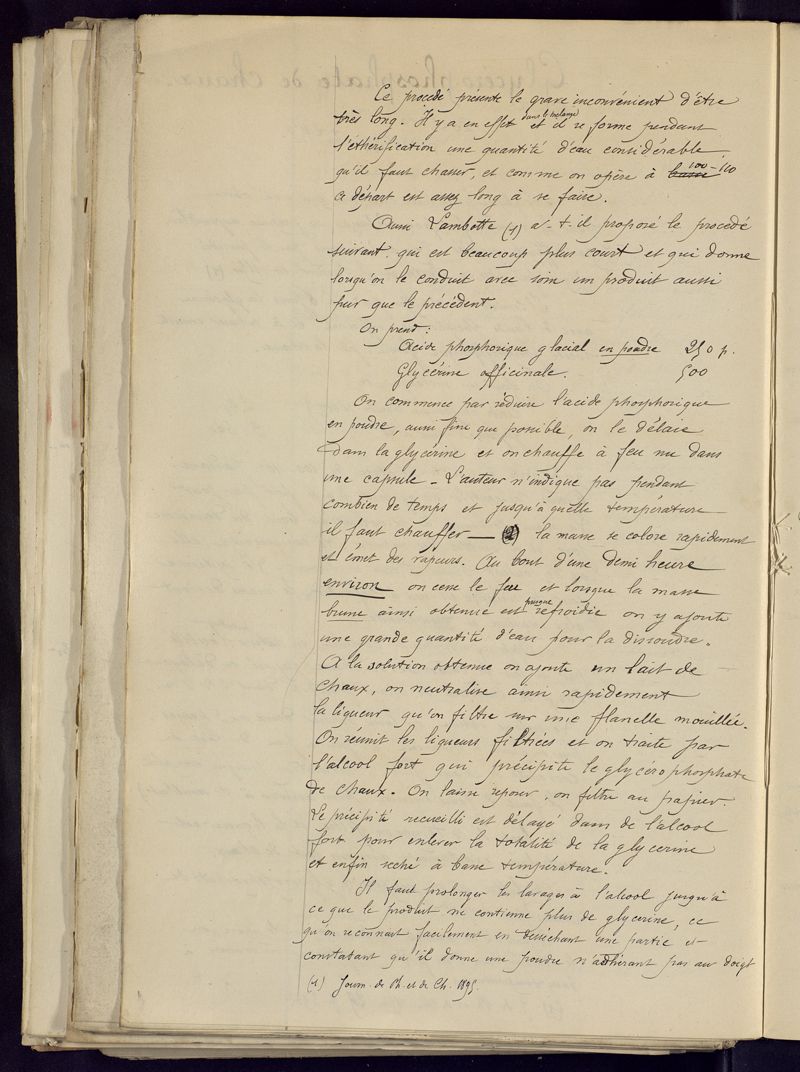 Ce procédé présente le grave inconvénient d'être
très long. Il y a en effet dans le mélange et il se forme pendant
l'éthérification une quantité d'eau considérable
qu'il faut chasser, et comme on opère à 100-110
ce départ est assez long à se faire.
Aussi Lambotte (1) a-t-il proposé le procédé
suivant qui est beaucoup plus court et qui donne
lorsqu'on le conduit avec soin un produit aussi
pur que le précédent.
On prend :
Acide phosphorique glacial en poudre 250 p.
Glycérine officinale. 500
On commence par réduire l'acide phosphorique
en poudre, aussi fine que possible, on le délaie
dans la glycérine et on chauffe à feu nu dans
une capsule - L'auteur n'indique pas pendant
combien de temps et jusqu'à quelle température
il faut chauffer — la masse se colore rapidement
et émet des vapeurs. Au bout d'une demi heure
environ on cesse le feu et lorsque la masse
brune ainsi obtenue est presque refroidie on y ajoute
une grande quantité d'eau pour la dissoudre.
A la solution obtenue on ajoute un lait de
chaux, on neutralise ainsi rapidement
la liqueur qu'on filtre sur une flanelle mouillée.
On réunit les liqueurs filtrées et on traite par
l'alcool fort qui précipite le glycérophosphate
de chaux. On laisse reposer, on filtre au papier.
Le précipité recueilli est délayé dans de l'alcool
fort pour enlever la totalité de la glycerine
et enfin séché à basse température.
Il faut prolonger les lavages à l'alcool jusqu'à
ce que le produit ne contienne plus de glycerine, ce
qu'on reconnait facilement en desséchant une partie et
constatant qu'il donne une poudre n'adhérant pas au doigt
(1) Journ. de Ph. et de Ch. 1895.